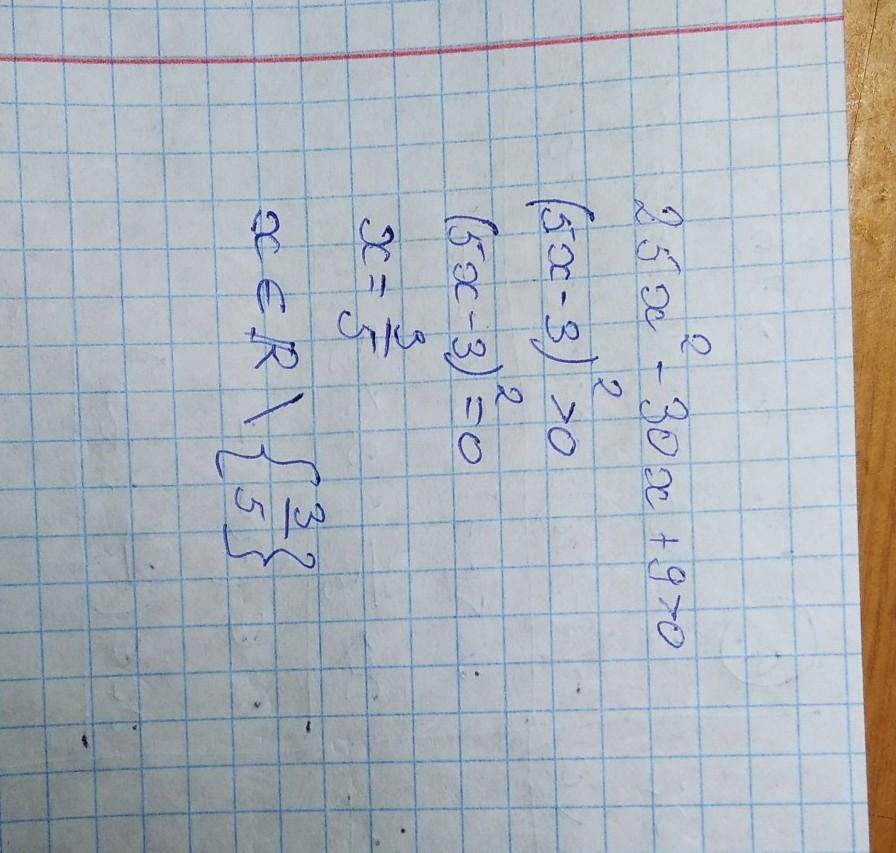 25x² - 30x + 9 > 0
(5x - 3)² > 0
(5x - 3)² = 0
x = 3/5
x ∈ R \ {3/5}